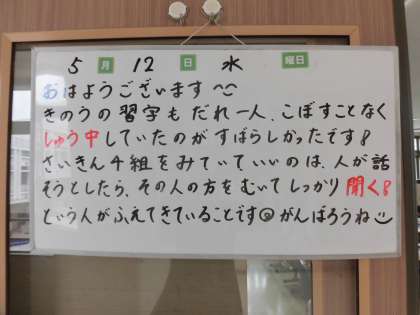 5月12日水曜日
おはようございます
きのうの習字もだれ一人、こぼすことなく
しゅう中していたのがすばらしかったです!
さいきん千組をみていていいのは、人が話
そうとしたら、その人の方をむいてしっかり聞く!
という人がふえてきていることです がんばろうね